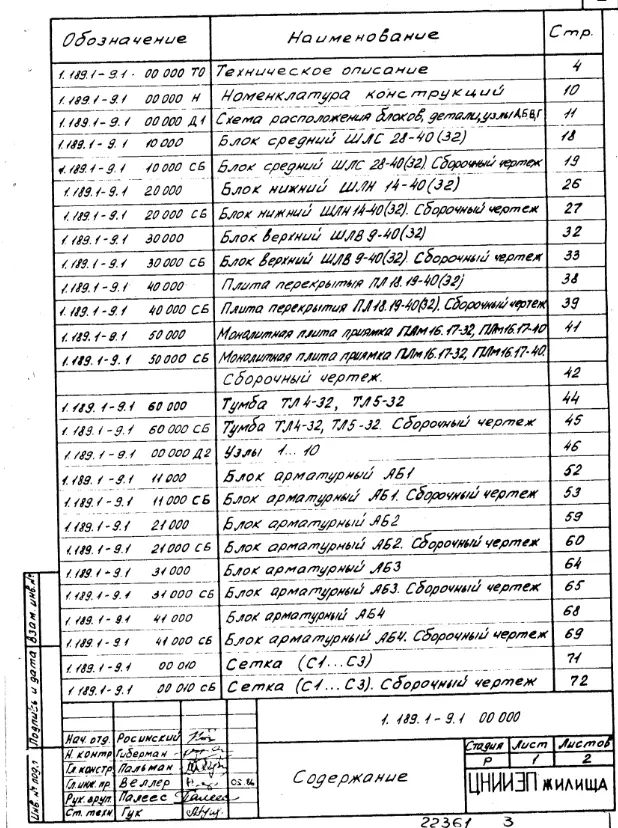 Обозначение Наименование Стр.
1.189.1-9.1 00 000 ТО Техническое описание 4
1.189.1-9.1 00 000 Н Номенклатура конструкций 10
1.189.1-9.1 00 000 Д1 Схема расположения блоков, детали, узлы А,Б,В,Г 11
1.189.1-9.1 10 000 Блок средний ШЛС 28-40(32) 18
1.189.1-9.1 10 000 СБ Блок средний ШЛС 28-40(32). Сборочный чертеж 19
1.189.1-9.1 20 000 Блок нижний ШЛН 14-40(32) 26
1.189.1-9.1 20 000 СБ Блок нижний ШЛН 14-40(32). Сборочный чертеж 27
1.189.1-9.1 30 000 Блок верхний ШЛВ 9-40(32) 32
1.189.1-9.1 30 000 СБ Блок верхний ШЛВ 9-40(32). Сборочный чертеж 33
1.189.1-9.1 40 000 Плита перекрытия ПЛ18.19-40(32) 38
1.189.1-9.1 40 000 СБ Плита перекрытия ПЛ18.19-40(32). Сборочный чертеж 39
1.189.1-9.1 50 000 Монолитная плита приямка ПЛм16.17-32, ПЛм16.17-40 41
1.189.1-9.1 50 000 СБ Монолитная плита приямка ПЛм16.17-32, ПЛм16.17-40.
Сборочный чертеж. 42
1.189.1-9.1 60 000 Тумба ТЛ4-32, ТЛ5-32 44
1.189.1-9.1 60 000 СБ Тумба ТЛ4-32, ТЛ5-32. Сборочный чертеж 45
1.189.1-9.1 00 000 Д2 Узлы 1...10 46
1.189.1-9.1 11 000 Блок арматурный АБ1 52
1.189.1-9.1 11 000 СБ Блок арматурный АБ1. Сборочный чертеж 53
1.189.1-9.1 21 000 Блок арматурный АБ2 59
1.189.1-9.1 21 000 СБ Блок арматурный АБ2. Сборочный чертеж 60
1.189.1-9.1 31 000 Блок арматурный АБ3 64
1.189.1-9.1 31 000 СБ Блок арматурный АБ3. Сборочный чертеж 65
1.189.1-9.1 41 000 Блок арматурный АБ4 68
1.189.1-9.1 41 000 СБ Блок арматурный АБ4. Сборочный чертеж 69
1.189.1-9.1 00 010 Сетка (С1...С3) 71
1.189.1-9.1 00 010 СБ Сетка (С1...С3). Сборочный чертеж 72
Взам. инв.№
Подпись и дата
Инв.№ подл
1.189.1-9.1 00 000
Нач. отд. Росинский
Н. контр Гиберман
Гл констр. Пальман
Гл. инж. пр. Веллер
Рук. групп. Палеес
Ст. техн Гук
Содержание
Стадия Лист Листов
Р 1 2
ЦНИИЭП жилища
22361 3